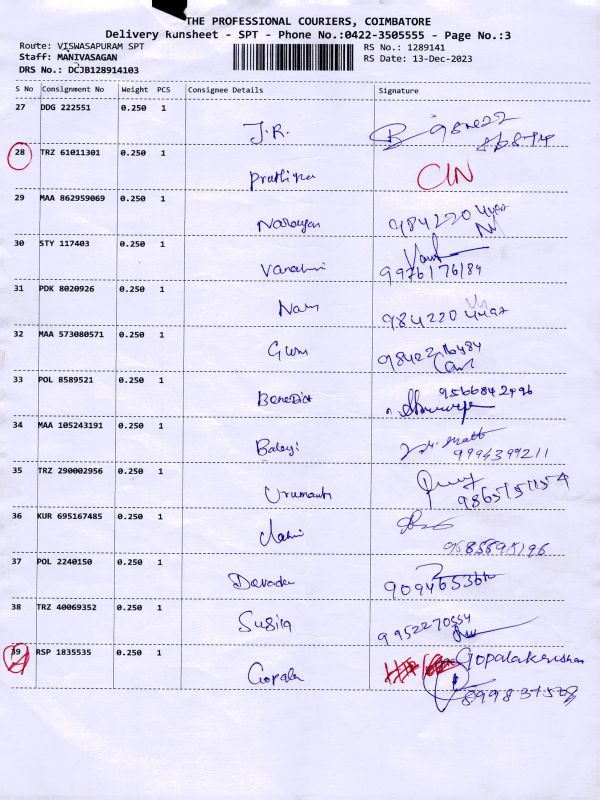 THE PROFESSIONAL COURIERS, COIMBATORE
Delivery Runsheet - SPT - Phone No.:0422-3505555 - Page No.:3
Route: VISWASAPURAM SPT RS No.: 1289141
Staff: MANIVASAGAN RS Date: 13-Dec-2023
DRS No.: DCJB128914103
S No Consignment No Weight PCS Consignee Details Signature
27 DDG 222551 0.250 1
J.R.
28 TRZ 61011301 0.250 1
CIN
29 MAA 862959069 0.250 1
Narayan
30 STY 117403 0.250 1
9976176184
31 PDK 8020926 0.250 1
32 MAA 573080571 0.250 1
33 POL 8589521 0.250 1
Benedict
34 MAA 105243191 0.250 1
Balaji 9994399211
35 TRZ 290002956 0.250 1
36 KUR 695167485 0.250 1
37 POL 2240150 0.250 1
38 TRZ 40069352 0.250 1
Susila 9952270554
39 RSP 1835535 0.250 1
Gopala Gopalakrishnan